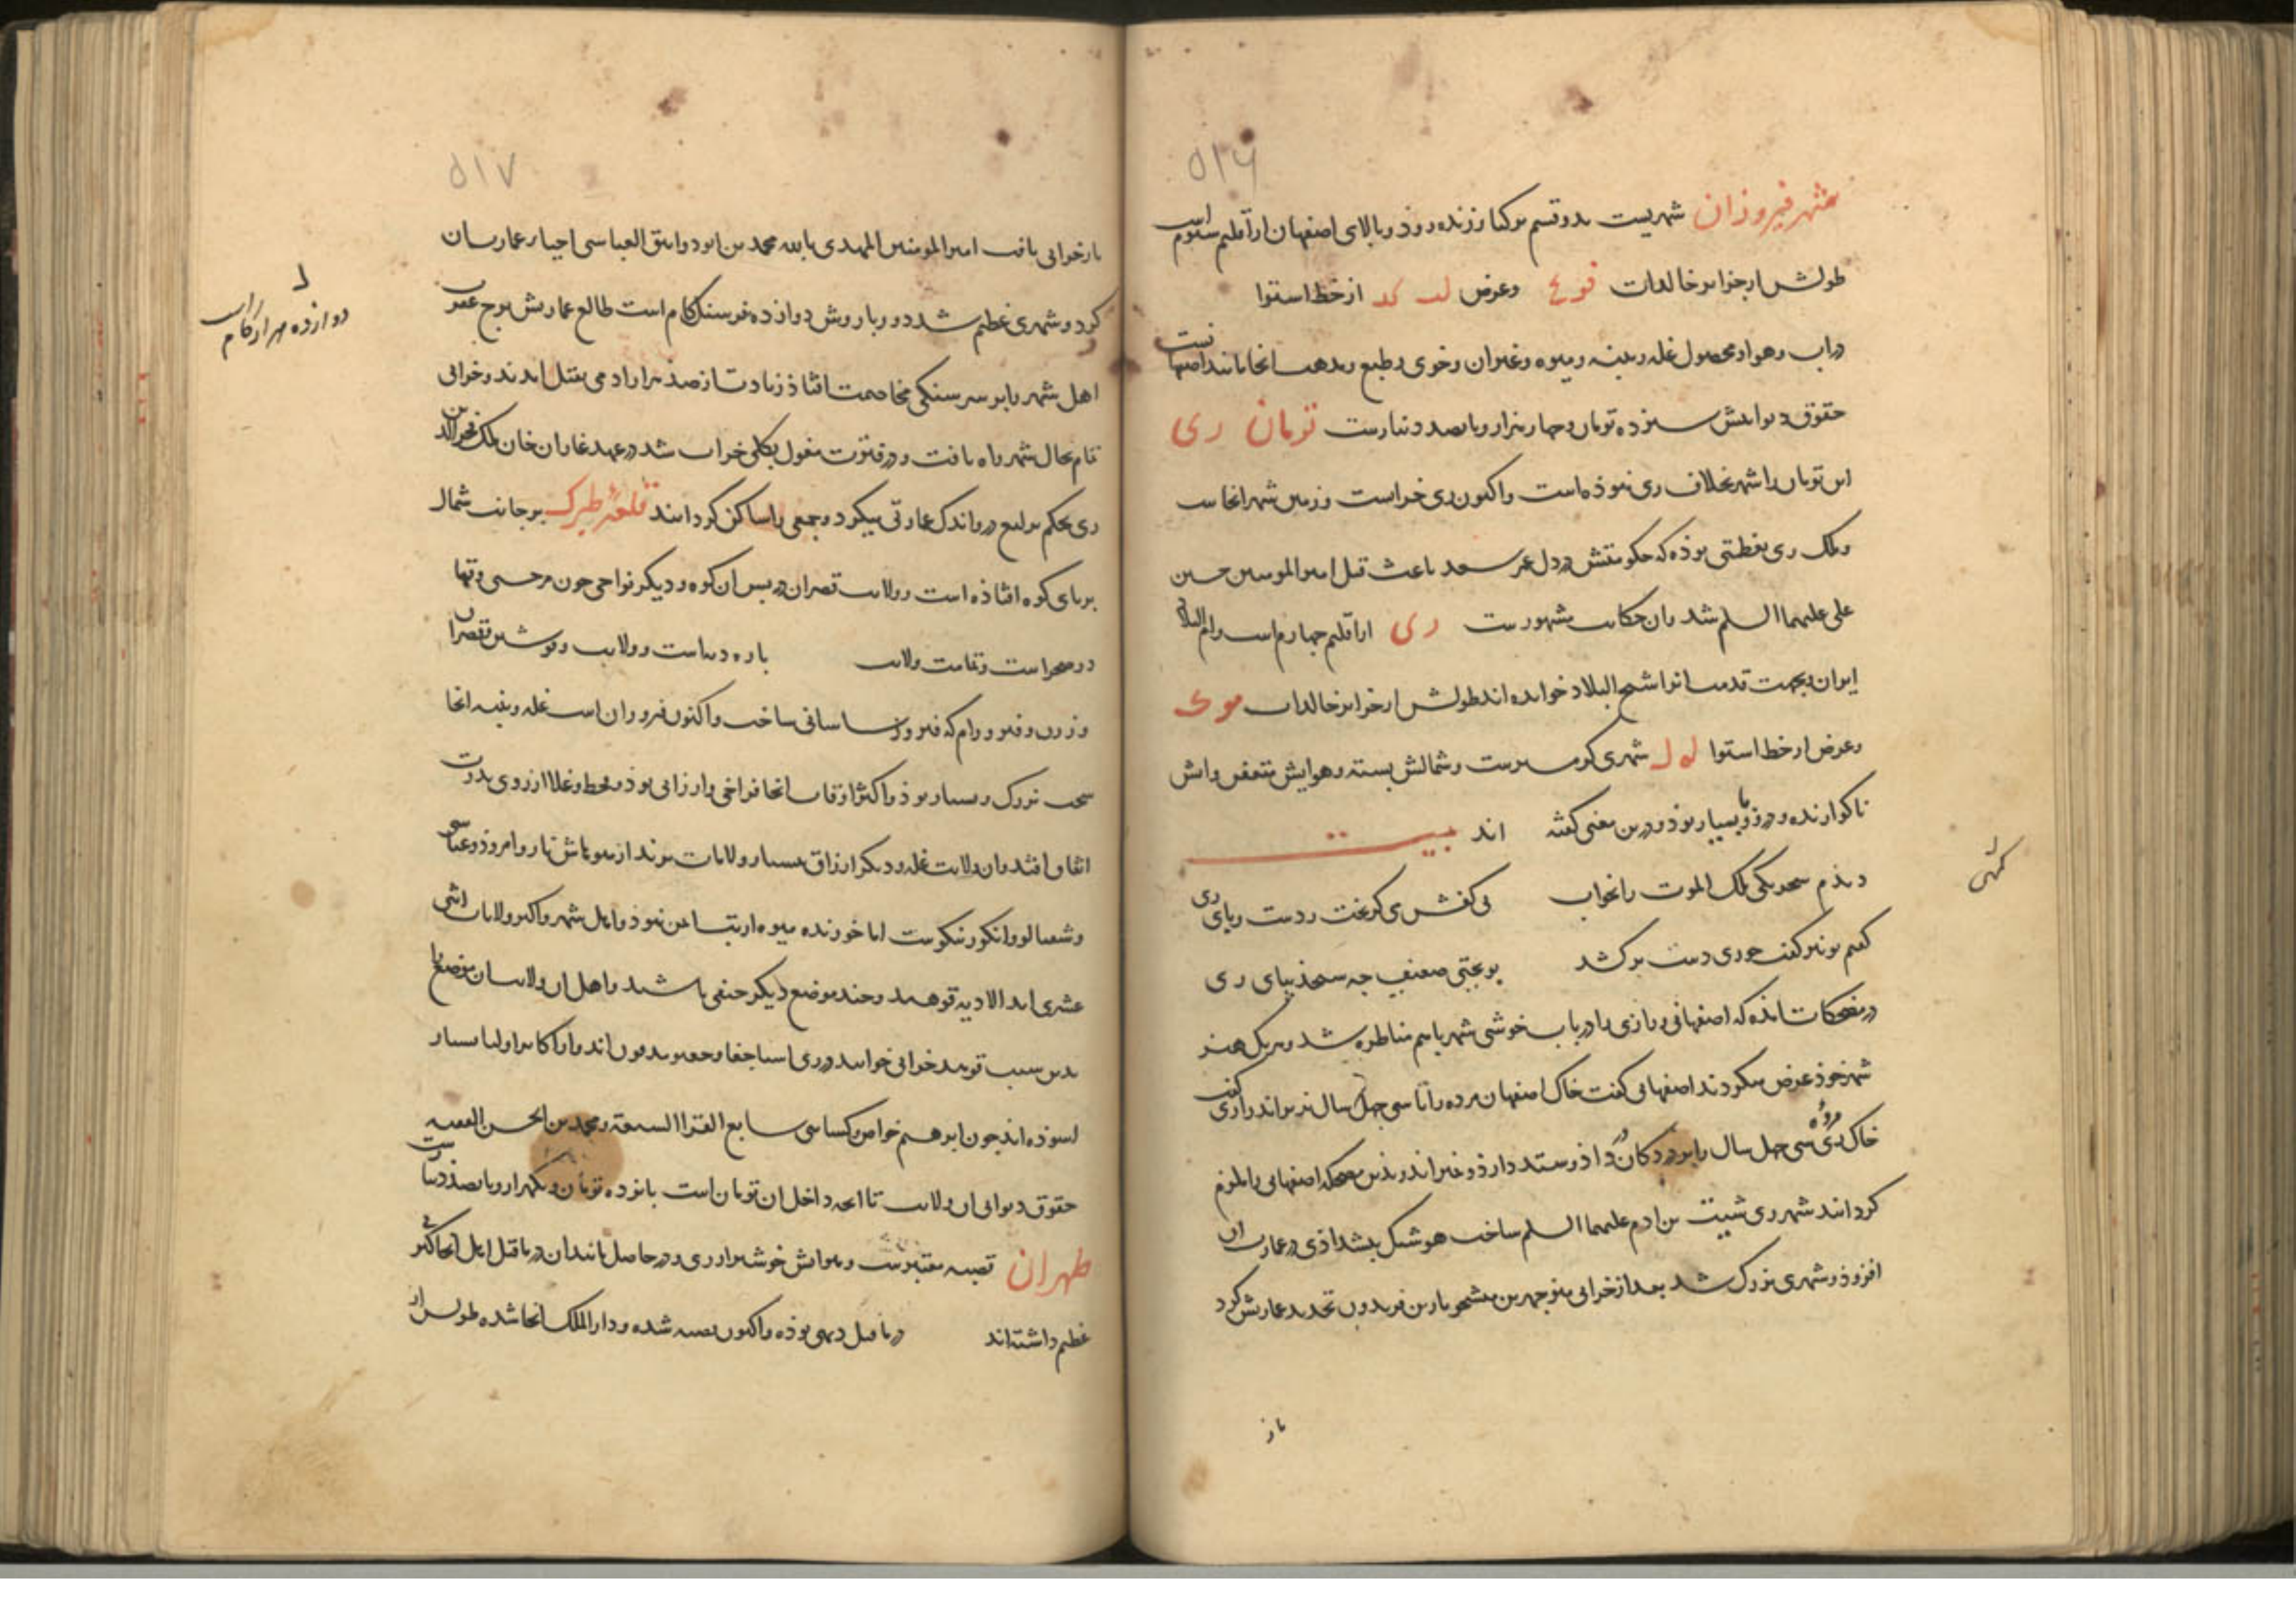 ۵۱۶
شهر فیروزان شهریست بدو قسم برکنار زنده رود و بالای اصفهان از اقلیم سیوم است
طولش از جزایر خالدات فوع وعرض لب کد از خط استوا
در آب وهوا ومحصول غله وپنبه ومیوه وغیران وخوی وطبع ومذهب انجا مانند اصفهانست
حقوق دیوانیش سیزده تومان وچهار هزار وپانصد دینارست تومان ری
این تومان را شهر بخلاف ری نبوذه است واکنون ری خرابست ورامین شهر انجاست
وملک ری بعظمتی بوذه که حکومتش در دل عمر سعد باعث قتل امیرالمومنین حسین
علی علیهما السلم شد وان حکایت مشهورست ری از اقلیم چهارم است وام البلاد
ایران وبجهت قدمت انرا شیخ البلاد خوانده اند طولش از جزایر خالدات موک
وعرض از خط استوا له ل شهری گرمسیرست وشمالش بسته وهوایش متعفن وابش
ناگوارنده ودرو وبا بسیار بوذ ودرین معنی گفته اند بیت
دیذم سحرگهی ملک الموت را بخواب بی کفش می گریخت ز دست وبای ری
گفتم تو نیز گفت چو ری دست برکشد بویحیی ضعیف چه سنجذ ببای ری
گهی
در مضحکات امذه که اصفهانی ورازی را در باب خوشی شهر باهم مناظره شد وهر یک هنر
شهر خوذ عرض میکردند اصفهانی گفت خاک اصفهان مرده را تا سی چهل سال نریزاند رازی گفت
خاک ری مرده سی چهل سال را بر در دکان داذ وستد دارد ونریزاند وبذین مضحکه اصفهانی را ملزم
کردانند شهر ری شیث بن ادم علیهما السلم ساخت هوشنگ پیشداذی در عمارت ان
افزوذ وشهری بزرک شد بعد از خرابی منوچهر بن میشخوریار بن فریدون تجدید عمارتش کرد
باز
۵۱۷
باز خرابی یافت امیرالمومنین المهدی بالله محمد بن ابو دوانیق العباسی احیا عمارت ان
کرد وشهری عظیم شد دور باروش دوازده فرسنک کام است طالع عمارتش برج عقرب
ل
دوازده هزار کام است
اهل شهر را بر سر سنگی مخاصمت افتاذ زیادت از صذ هزار ادمی بقتل امدند وخرابی
تمام بحال شهر راه یافت ودر فترت مغول بکلی خراب شد در عهد غازان خان ملک فخرالدین
ری بحکم یرلیغ درو اندک عمارتی میکرد وجمعی را ساکن کردانید قلعه طبرک بر جانب شمال
بر پای کوه افتاذه است وولایت قصران در پس ان کوه ودیگر نواحی چون مرجبی وقها
در صحراست وتمامت ولایت پاره دیهاست وولایت وقوشین وقصران
وزرین وفیروزرام که فیروز ساسانی ساخت واکنون فیروزان است غله وپنبه انجا
سخت نیک وبسیار بوذ واکثر اوقات انجا فراخی وارزانی بوذ وقحط وغلا از روی ندرت
اتفاق افتد وان ولایت غله ودیگر ارزاق بسیار ولایات برند از میوهاش نار وامروذ وعباسی
وشفتالو وانگور نیکوست اما خورنده میوه از تب ایمن نبوذ واهل شهر واکثر ولایات اثنی
عشری اند الا دیه قوهه وچند موضع دیگر حنفی باشند واهل ان ولایت ان موضع را
بدین سبب قوهه خران خوانند ودر ری اهل بیت بسیار مدفون اند واز اکابر واولیا بسیار
اسوذه اند چون ابرهیم خواص وکسائی سابع القراء السبعة ومحمد بن الحسن الفقیه
حقوق دیوانی ان ولایت تا انچه داخل ان تومان است پانزده تومان ویکهزار وپانصذ دینارست
طهران قصبه معتبرست وهوایش خوشتر از ری ودر حاصل مانند ان در ماقبل اهل انجا کثرتی
عظیم داشته اند در ماقبل دیهی بوذه واکنون قصبه شده ودار الملک انجا شده طولش از